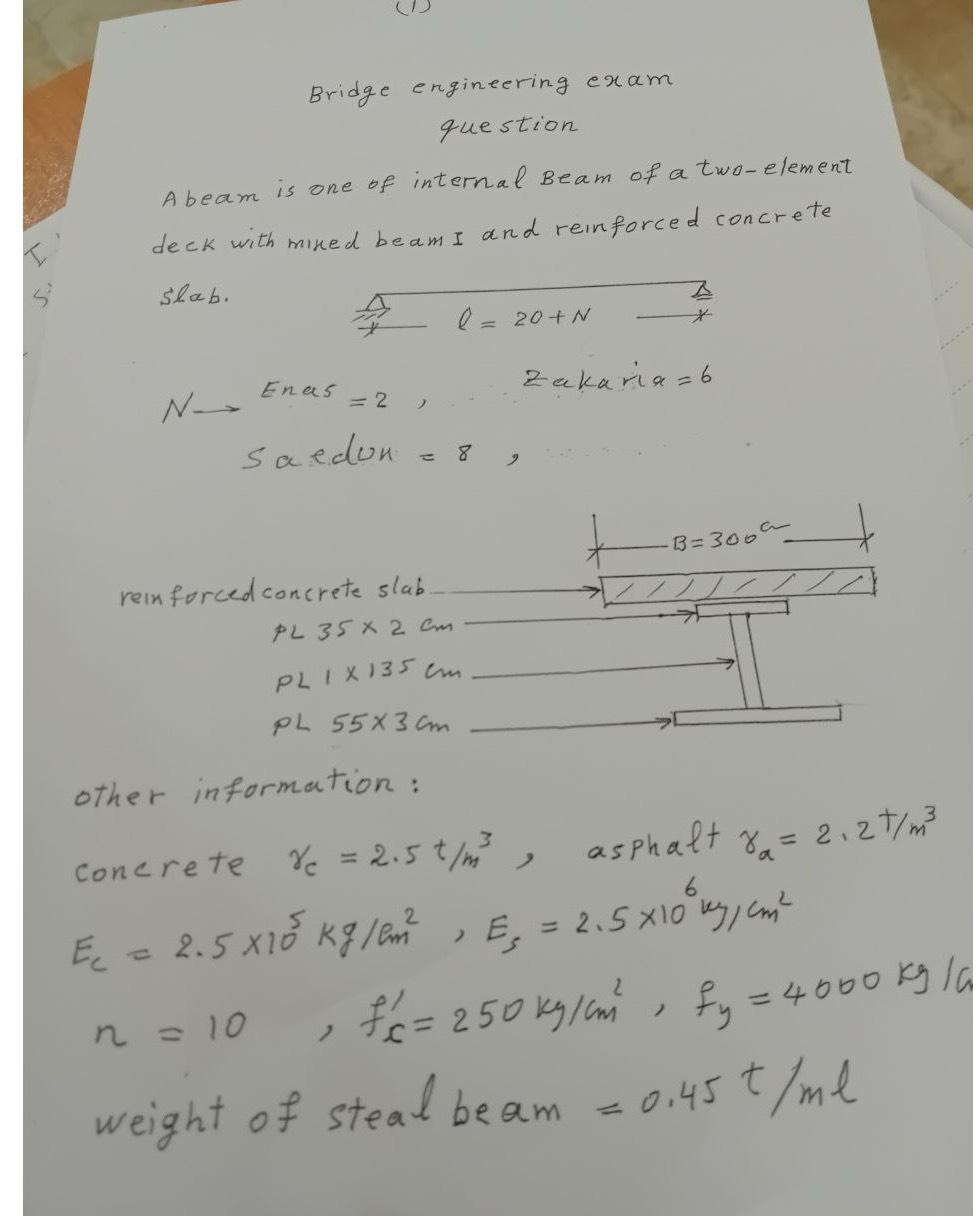 (1)
Bridge engineering exam
question
A beam is one of internal Beam of a two-element
deck with mixed beam I and reinforced concrete
slab.
l = 20+N
N→ Enas = 2 , Zakaria = 6
Saedun = 8 ,
B=300cm
reinforced concrete slab
PL 35 x 2 cm
PL 1 x 135 cm
PL 55x3 cm
other information :
concrete γc = 2.5 t/m³ , asphalt γa = 2.2 t/m³
Ec = 2.5 x10⁵ kg/cm² , Es = 2.5 x10⁶ kg/cm²
n = 10 , f'c = 250 kg/cm² , fy = 4000 kg/c
weight of steal beam = 0.45 t/ml